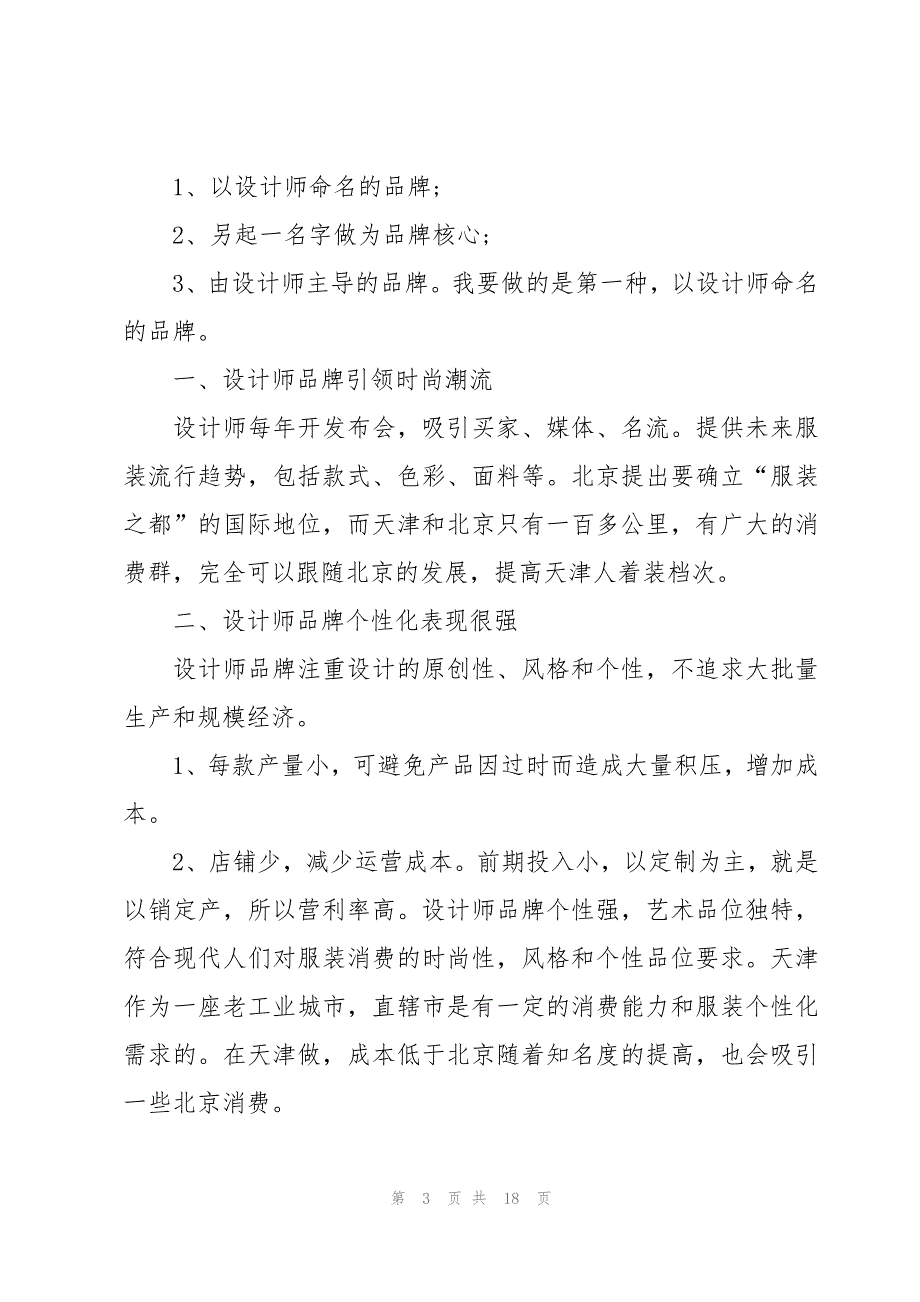 1、以设计师命名的品牌;
2、另起一名字做为品牌核心;
3、由设计师主导的品牌。我要做的是第一种，以设计师命名
的品牌。
一、设计师品牌引领时尚潮流
设计师每年开发布会，吸引买家、媒体、名流。提供未来服
装流行趋势，包括款式、色彩、面料等。北京提出要确立“服装
之都”的国际地位，而天津和北京只有一百多公里，有广大的消
费群，完全可以跟随北京的发展，提高天津人着装档次。
二、设计师品牌个性化表现很强
设计师品牌注重设计的原创性、风格和个性，不追求大批量
生产和规模经济。
1、每款产量小，可避免产品因过时而造成大量积压，增加成
本。
2、店铺少，减少运营成本。前期投入小，以定制为主，就是
以销定产，所以营利率高。设计师品牌个性强，艺术品位独特，
符合现代人们对服装消费的时尚性，风格和个性品位要求。天津
作为一座老工业城市，直辖市是有一定的消费能力和服装个性化
需求的。在天津做，成本低于北京随着知名度的提高，也会吸引
一些北京消费。
第 3 页 共 18 页